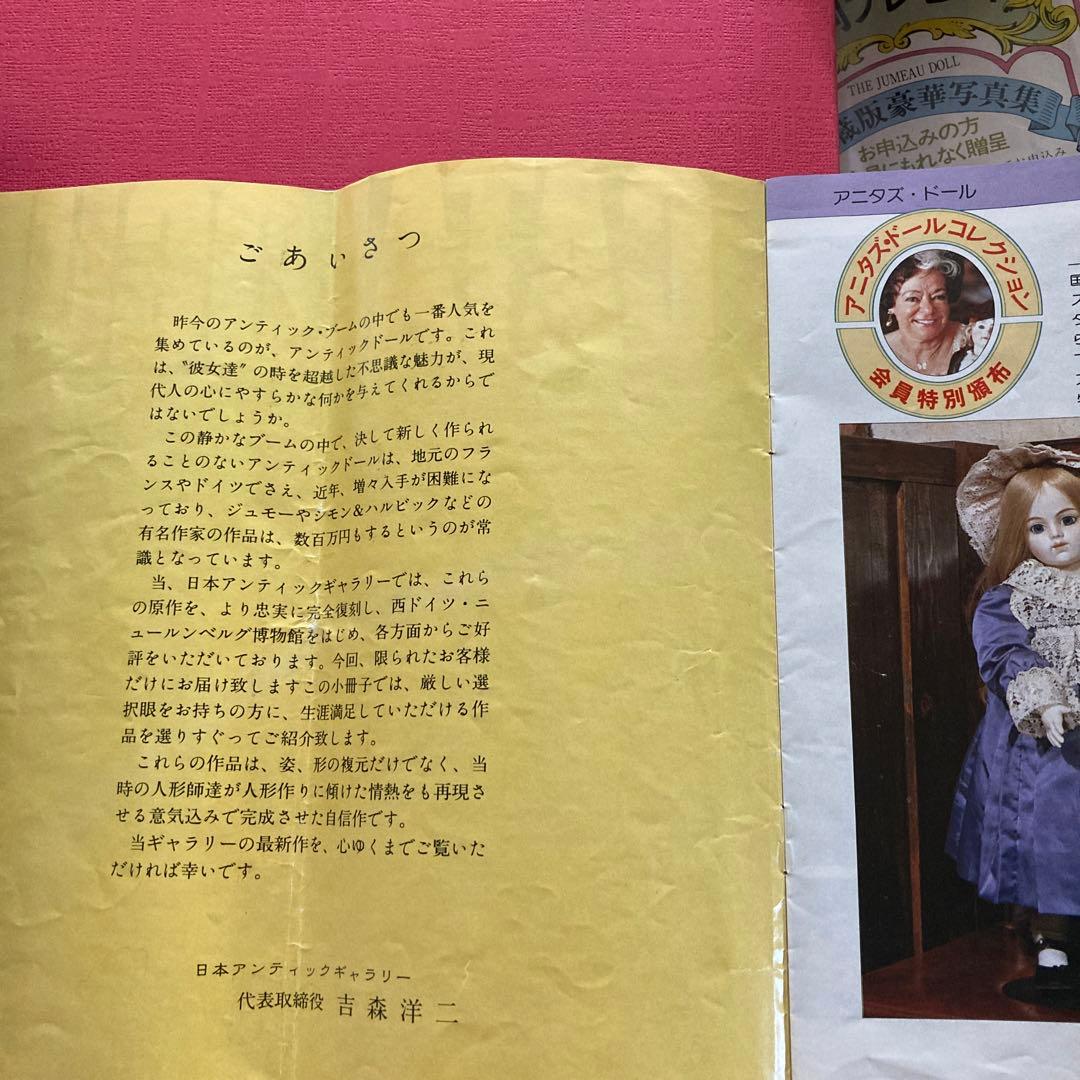 ごあいさつ
昨今のアンティック・ブームの中でも一番人気を
集めているのが、アンティックドールです。これ
は、"彼女達"の時を超越した不思議な魅力が、現
代人の心にやすらかな何かを与えてくれるからで
はないでしょうか。
この静かなブームの中で、決して新しく作られ
ることのないアンティックドールは、地元のフラ
ンスやドイツでさえ、近年、増々入手が困難にな
っており、ジュモーやシモン&ハルビックなどの
有名作家の作品は、数百万円もするというのが常
識となっています。
当、日本アンティックギャラリーでは、これら
の原作を、より忠実に完全復刻し、西ドイツ・ニ
ュールンベルグ博物館をはじめ、各方面からご好
評をいただいております。今回、限られたお客様
だけにお届け致しますこの小冊子では、厳しい選
択眼をお持ちの方に、生涯満足していただける作
品を選りすぐってご紹介致します。
これらの作品は、姿、形の復元だけでなく、当
時の人形師達が人形作りに傾けた情熱をも再現さ
せる意気込みで完成させた自信作です。
当ギャラリーの最新作を、心ゆくまでご覧いた
だければ幸いです。
日本アンティックギャラリー
代表取締役 吉森洋二
THE JUMEAU DOLL
蔵版豪華写真集
お申込みの方
にもれなく贈呈
お申込み
アニタズ・ドール
アニタズ・ドールコレクション
会員特別頒布